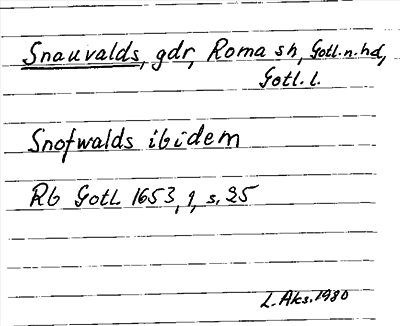 Snauvalds, gdr, Roma sh, Gotl. n. hd,
Gotl. l.
Snofwalds ibidem
Rb Gotl 1653, 1, s. 25
L. Aks. 1980